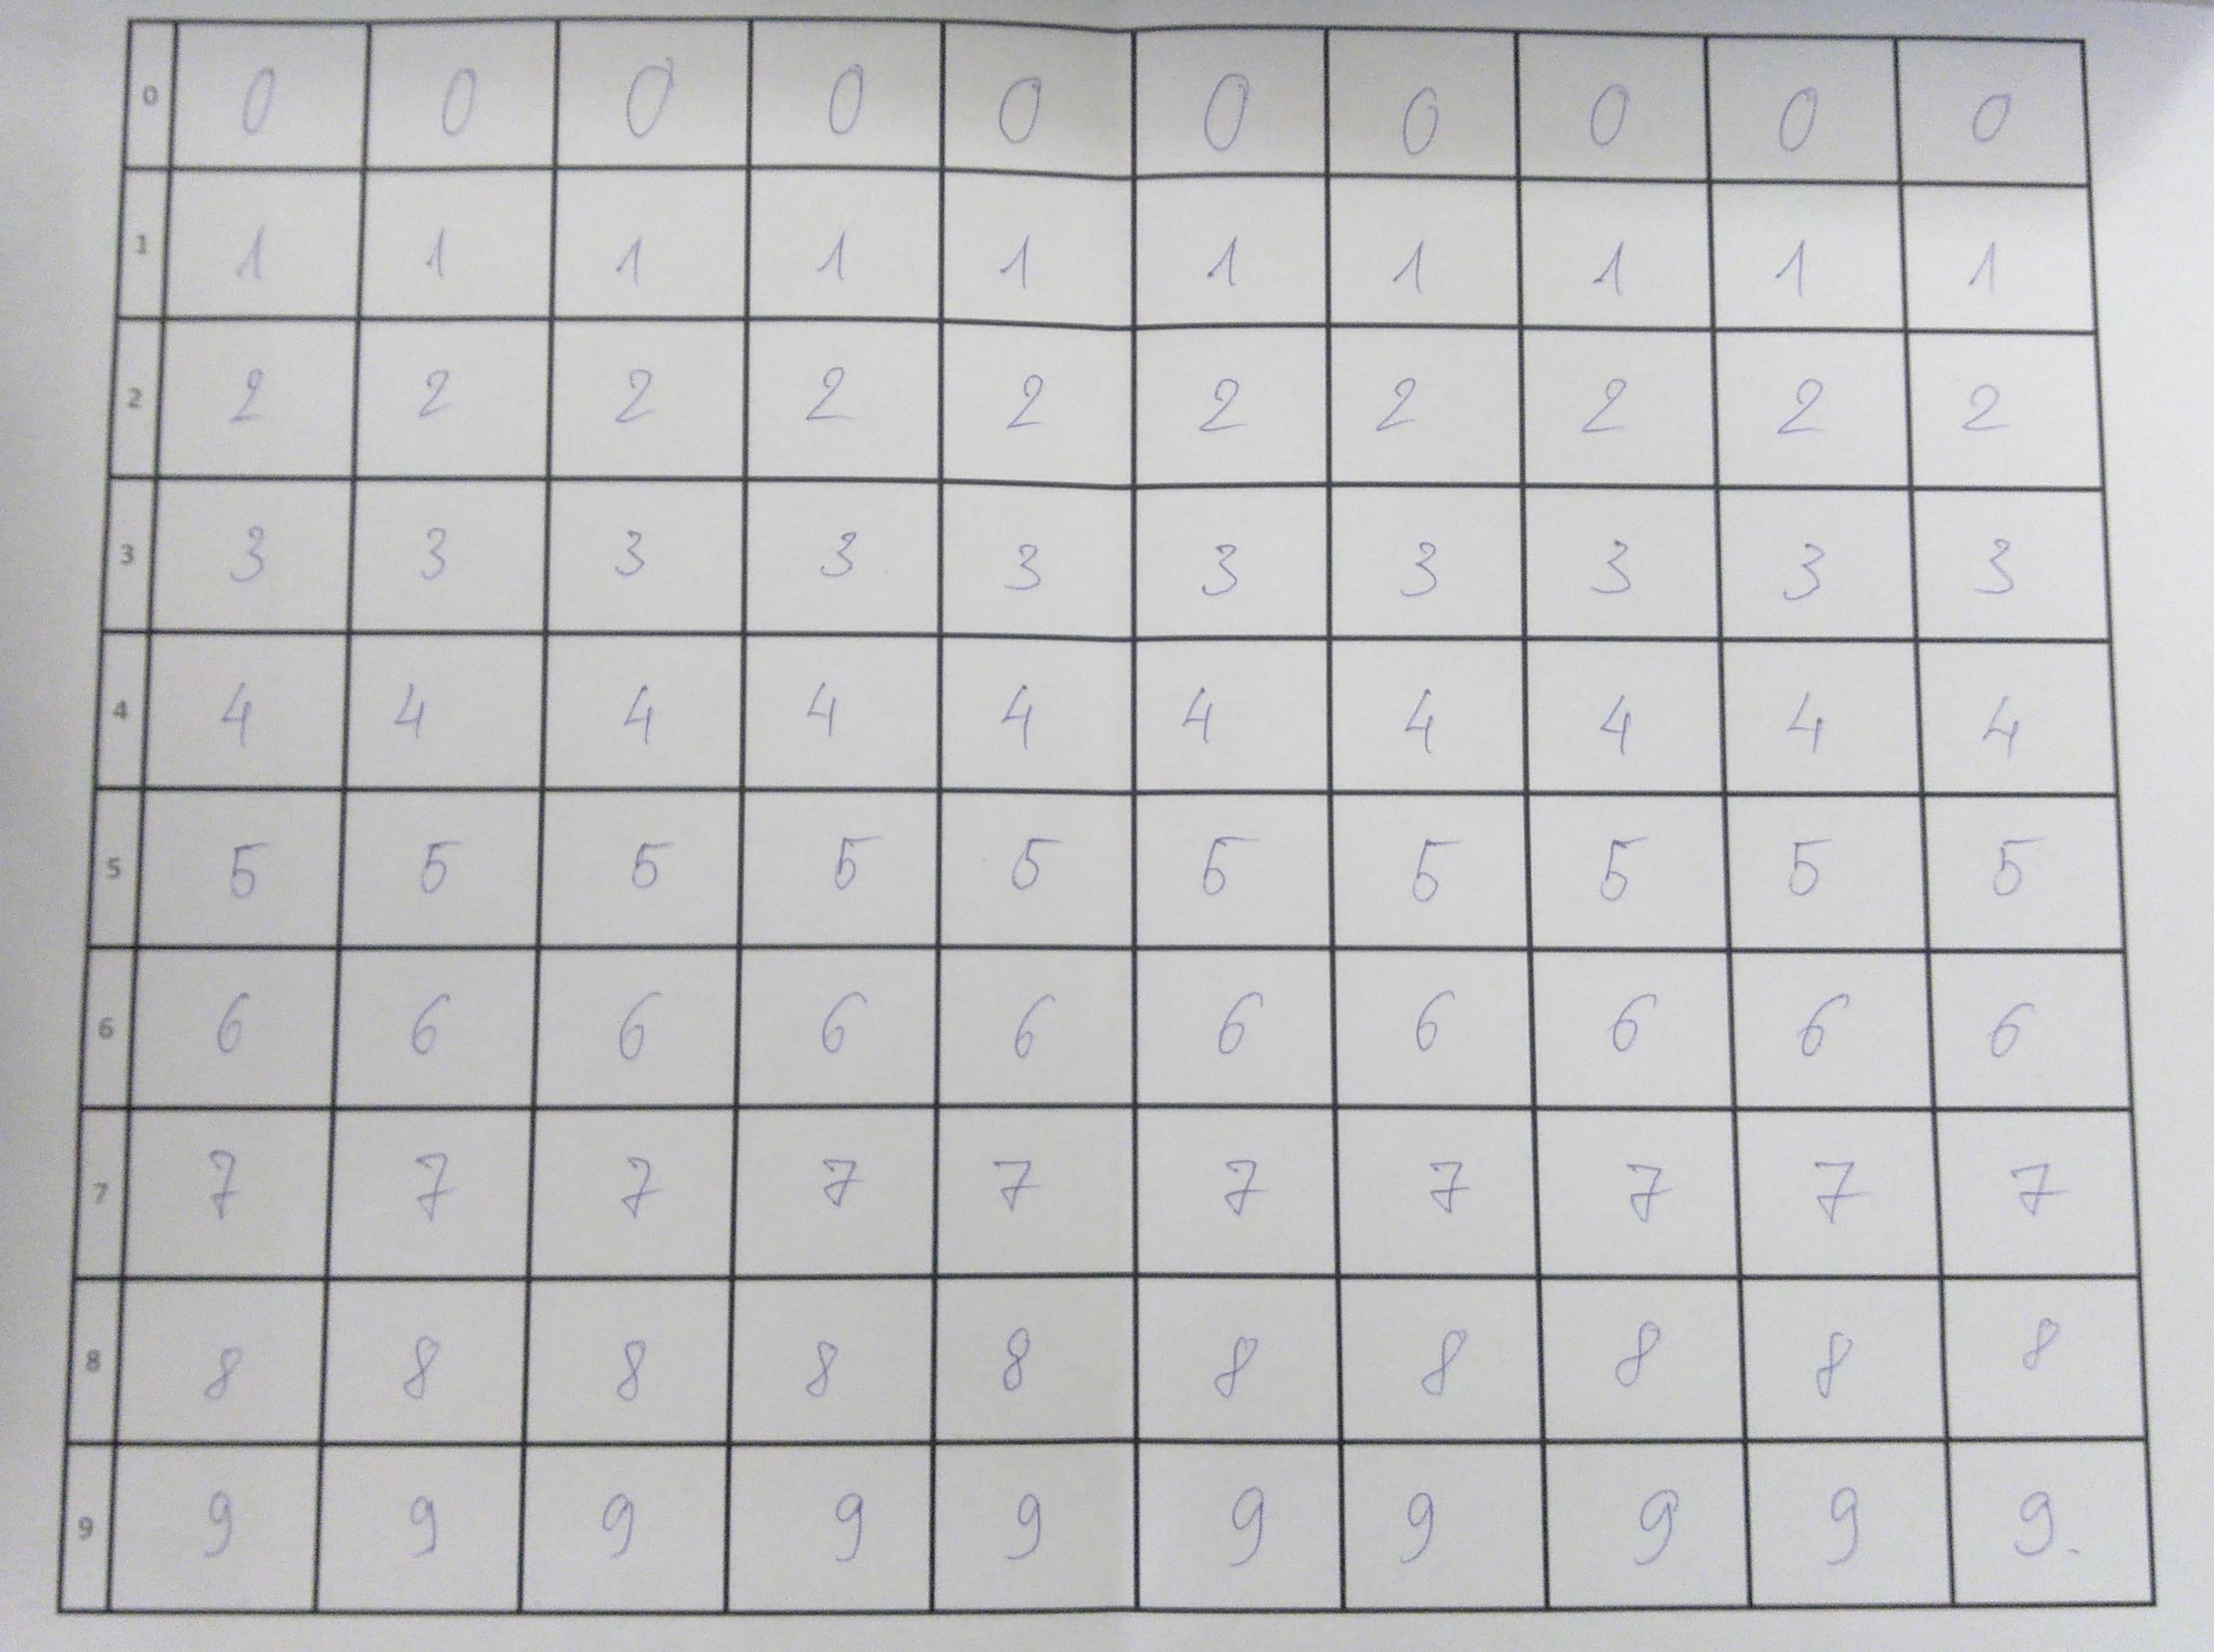 0 0 0 0 0 0 0 0 0 0 0
1 1 1 1 1 1 1 1 1 1 1
2 2 2 2 2 2 2 2 2 2 2
3 3 3 3 3 3 3 3 3 3 3
4 4 4 4 4 4 4 4 4 4 4
5 5 5 5 5 5 5 5 5 5 5
6 6 6 6 6 6 6 6 6 6 6
7 7 7 7 7 7 7 7 7 7 7
8 8 8 8 8 8 8 8 8 8 8
9 9 9 9 9 9 9 9 9 9 9.